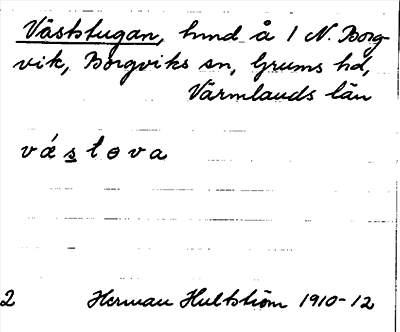 Väststugan, hmd å 1 N. Borg-
vik, Borgviks sn, Grums hd,
Värmlands län
vǽstɵva
2 Herman Hultström 1910-12